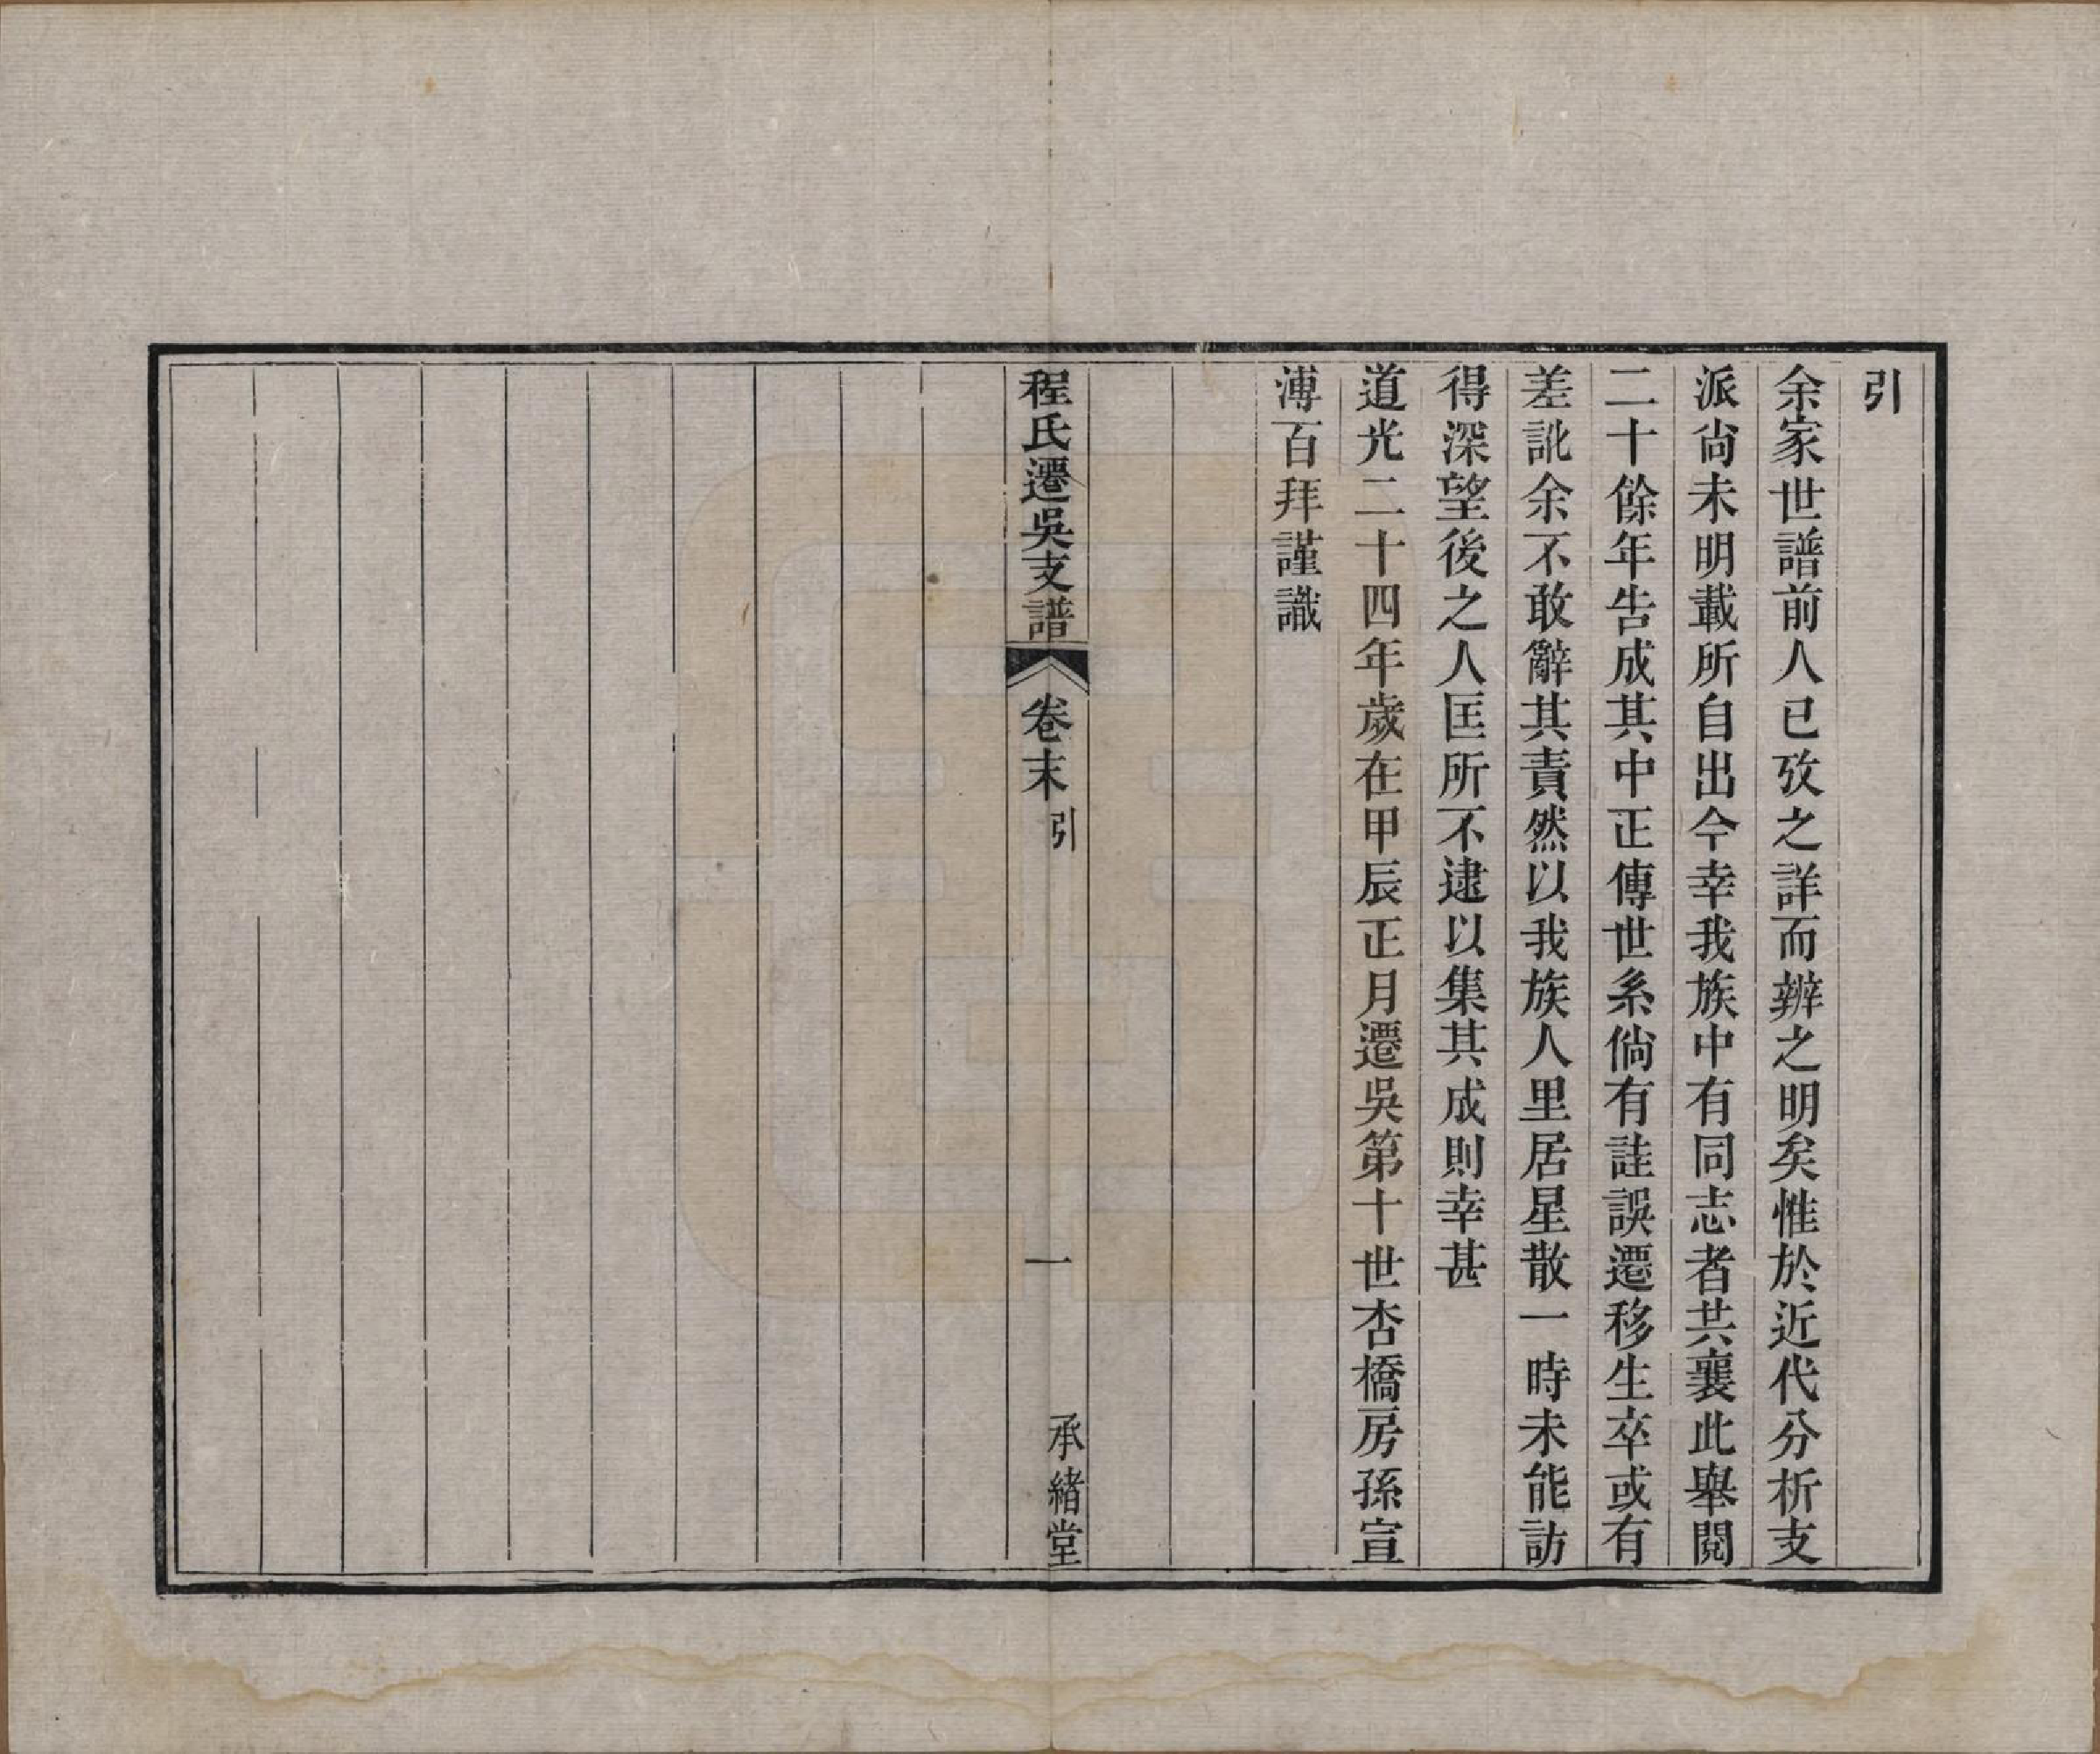 引
余家世譜前人已攷之詳而辨之明矣惟於近代分析支
派尙未明載所自出今幸我族中有同志者共襄此舉閱
二十餘年告成其中正傳世系倘有詿誤遷移生卒或有
差訛余不敢辭其責然以我族人里居星散一時未能訪
得深望後之人匡所不逮以集其成則幸甚
道光二十四年歲在甲辰正月遷吳第十世杏橋房孫宣
溥百拜謹識
程氏遷吳支譜
卷末
引
一
承緒堂